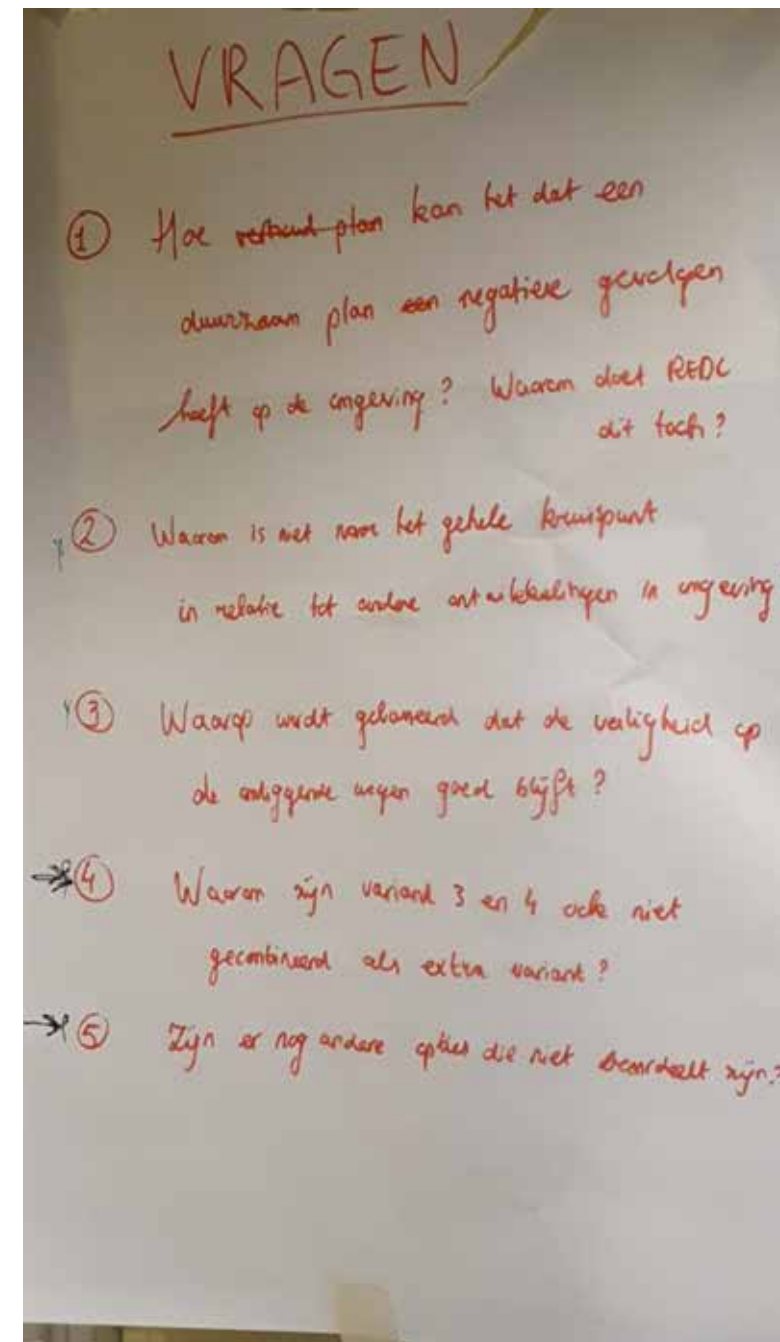 VRAGEN
① Hoe plan kan het dat een
duurzaam plan een negatieve gevolgen
heeft op de omgeving? Waarom doet REDC
dit toch?
② Waarom is niet naar het gehele kruispunt
in relatie tot andere ontwikkelingen in omgeving
③ Waarop wordt gebaseerd dat de veiligheid op
de omliggende wegen goed blijft?
④ Waarom zijn variant 3 en 4 ook niet
gecombineerd als extra variant?
⑤ Zijn er nog andere opties die niet beoordeelt zijn?